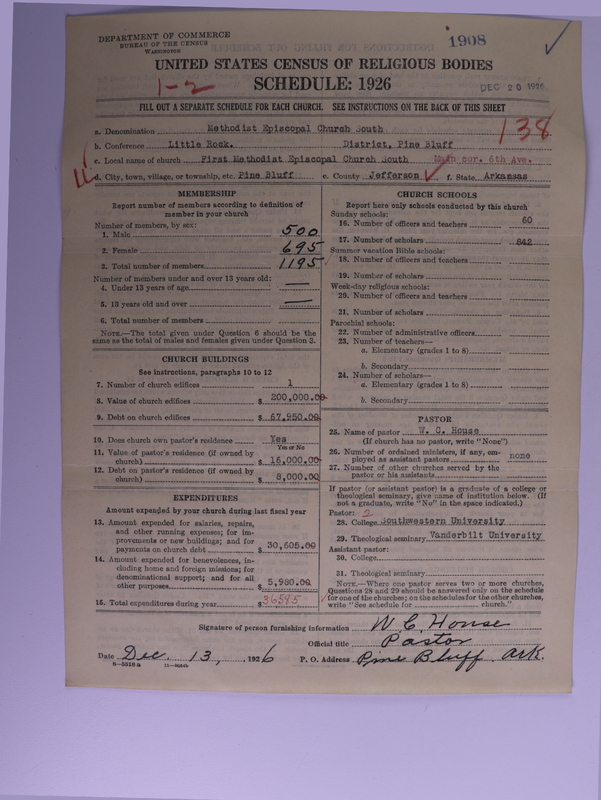 DEPARTMENT OF COMMERCE
BUREAU OF THE CENSUS
WASHINGTON
1908
UNITED STATES CENSUS OF RELIGIOUS BODIES
1-2
SCHEDULE: 1926
DEC 20 1926
FILL OUT A SEPARATE SCHEDULE FOR EACH CHURCH. SEE INSTRUCTIONS ON THE BACK OF THIS SHEET
a. Denomination Methodist Episcopal Church South
138
b. Conference Little Rock. District, Pine Bluff
c. Local name of church First Methodist Episcopal Church South Main cor. 6th Ave.
d. City, town, village, or township, etc. Pine Bluff e. County Jefferson f. State Arkansas
MEMBERSHIP
Report number of members according to definition of
member in your church
Number of members, by sex:
1. Male 500
2. Female 695
3. Total number of members 1195
Number of members under and over 13 years old:
4. Under 13 years of age —
5. 13 years old and over —
6. Total number of members
NOTE.—The total given under Question 6 should be the
same as the total of males and females given under Question 3.
CHURCH BUILDINGS
See instructions, paragraphs 10 to 12
7. Number of church edifices 1
8. Value of church edifices $ 200,000.00
9. Debt on church edifices $ 67,950.00
10. Does church own pastor's residence Yes
Yes or No
11. Value of pastor's residence (if owned by
church) $ 16,000.00
12. Debt on pastor's residence (if owned by
church) $ 8,000.00
EXPENDITURES
Amount expended by your church during last fiscal year
13. Amount expended for salaries, repairs,
and other running expenses; for im-
provements or new buildings; and for
payments on church debt $ 30,605.00
14. Amount expended for benevolences, in-
cluding home and foreign missions; for
denominational support; and for all
other purposes $ 5,980.00
15. Total expenditures during year $ 36585
CHURCH SCHOOLS
Report here only schools conducted by this church
Sunday schools:
16. Number of officers and teachers 60
17. Number of scholars 842
Summer vacation Bible schools:
18. Number of officers and teachers
19. Number of scholars
Week-day religious schools:
20. Number of officers and teachers
21. Number of scholars
Parochial schools:
22. Number of administrative officers
23. Number of teachers—
a. Elementary (grades 1 to 8)
b. Secondary
24. Number of scholars—
a. Elementary (grades 1 to 8)
b. Secondary
PASTOR
25. Name of pastor W. C. House
(If church has no pastor, write "None")
26. Number of ordained ministers, if any, em-
ployed as assistant pastors none
27. Number of other churches served by the
pastor or his assistants
If pastor (or assistant pastor) is a graduate of a college or
theological seminary, give name of institution below. (If
not a graduate, write "No" in the space indicated.)
Pastor: 2
28. College Southwestern University
29. Theological seminary Vanderbilt University
Assistant pastor:
30. College
31. Theological seminary
NOTE.—Where one pastor serves two or more churches,
Questions 28 and 29 should be answered only on the schedule
for one of the churches; on the schedules for the other churches,
write "See schedule for church."
Signature of person furnishing information W. C. House
Official title Pastor
Date Dec. 13, 1926 P. O. Address Pine Bluff, Ark.